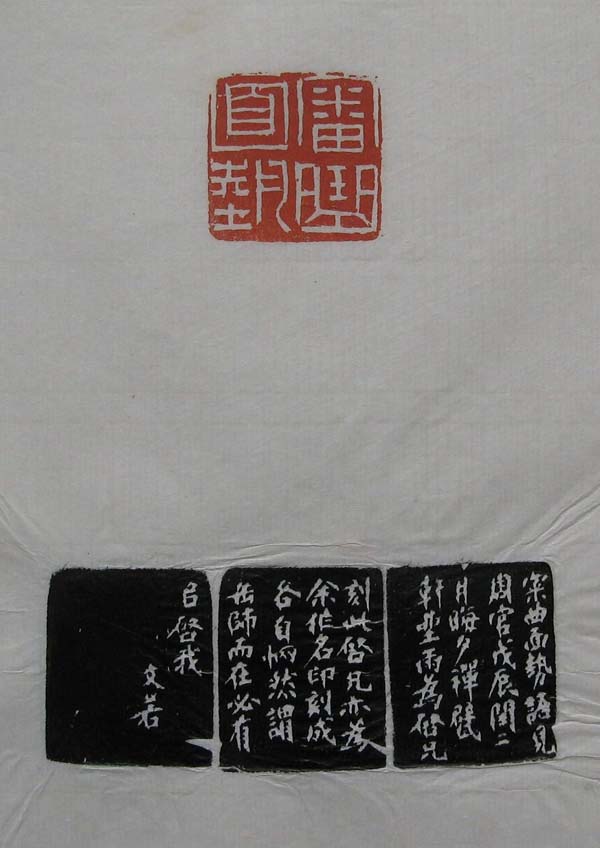 宷曲
面埶
宷曲面勢語見
周官戊辰閏二
月晦夕禪甓
軒坐雨為啓兄
刻此啓兄亦為
余作名印刻成
各自惘然謂
缶師而在必有
㠯啓我
文若